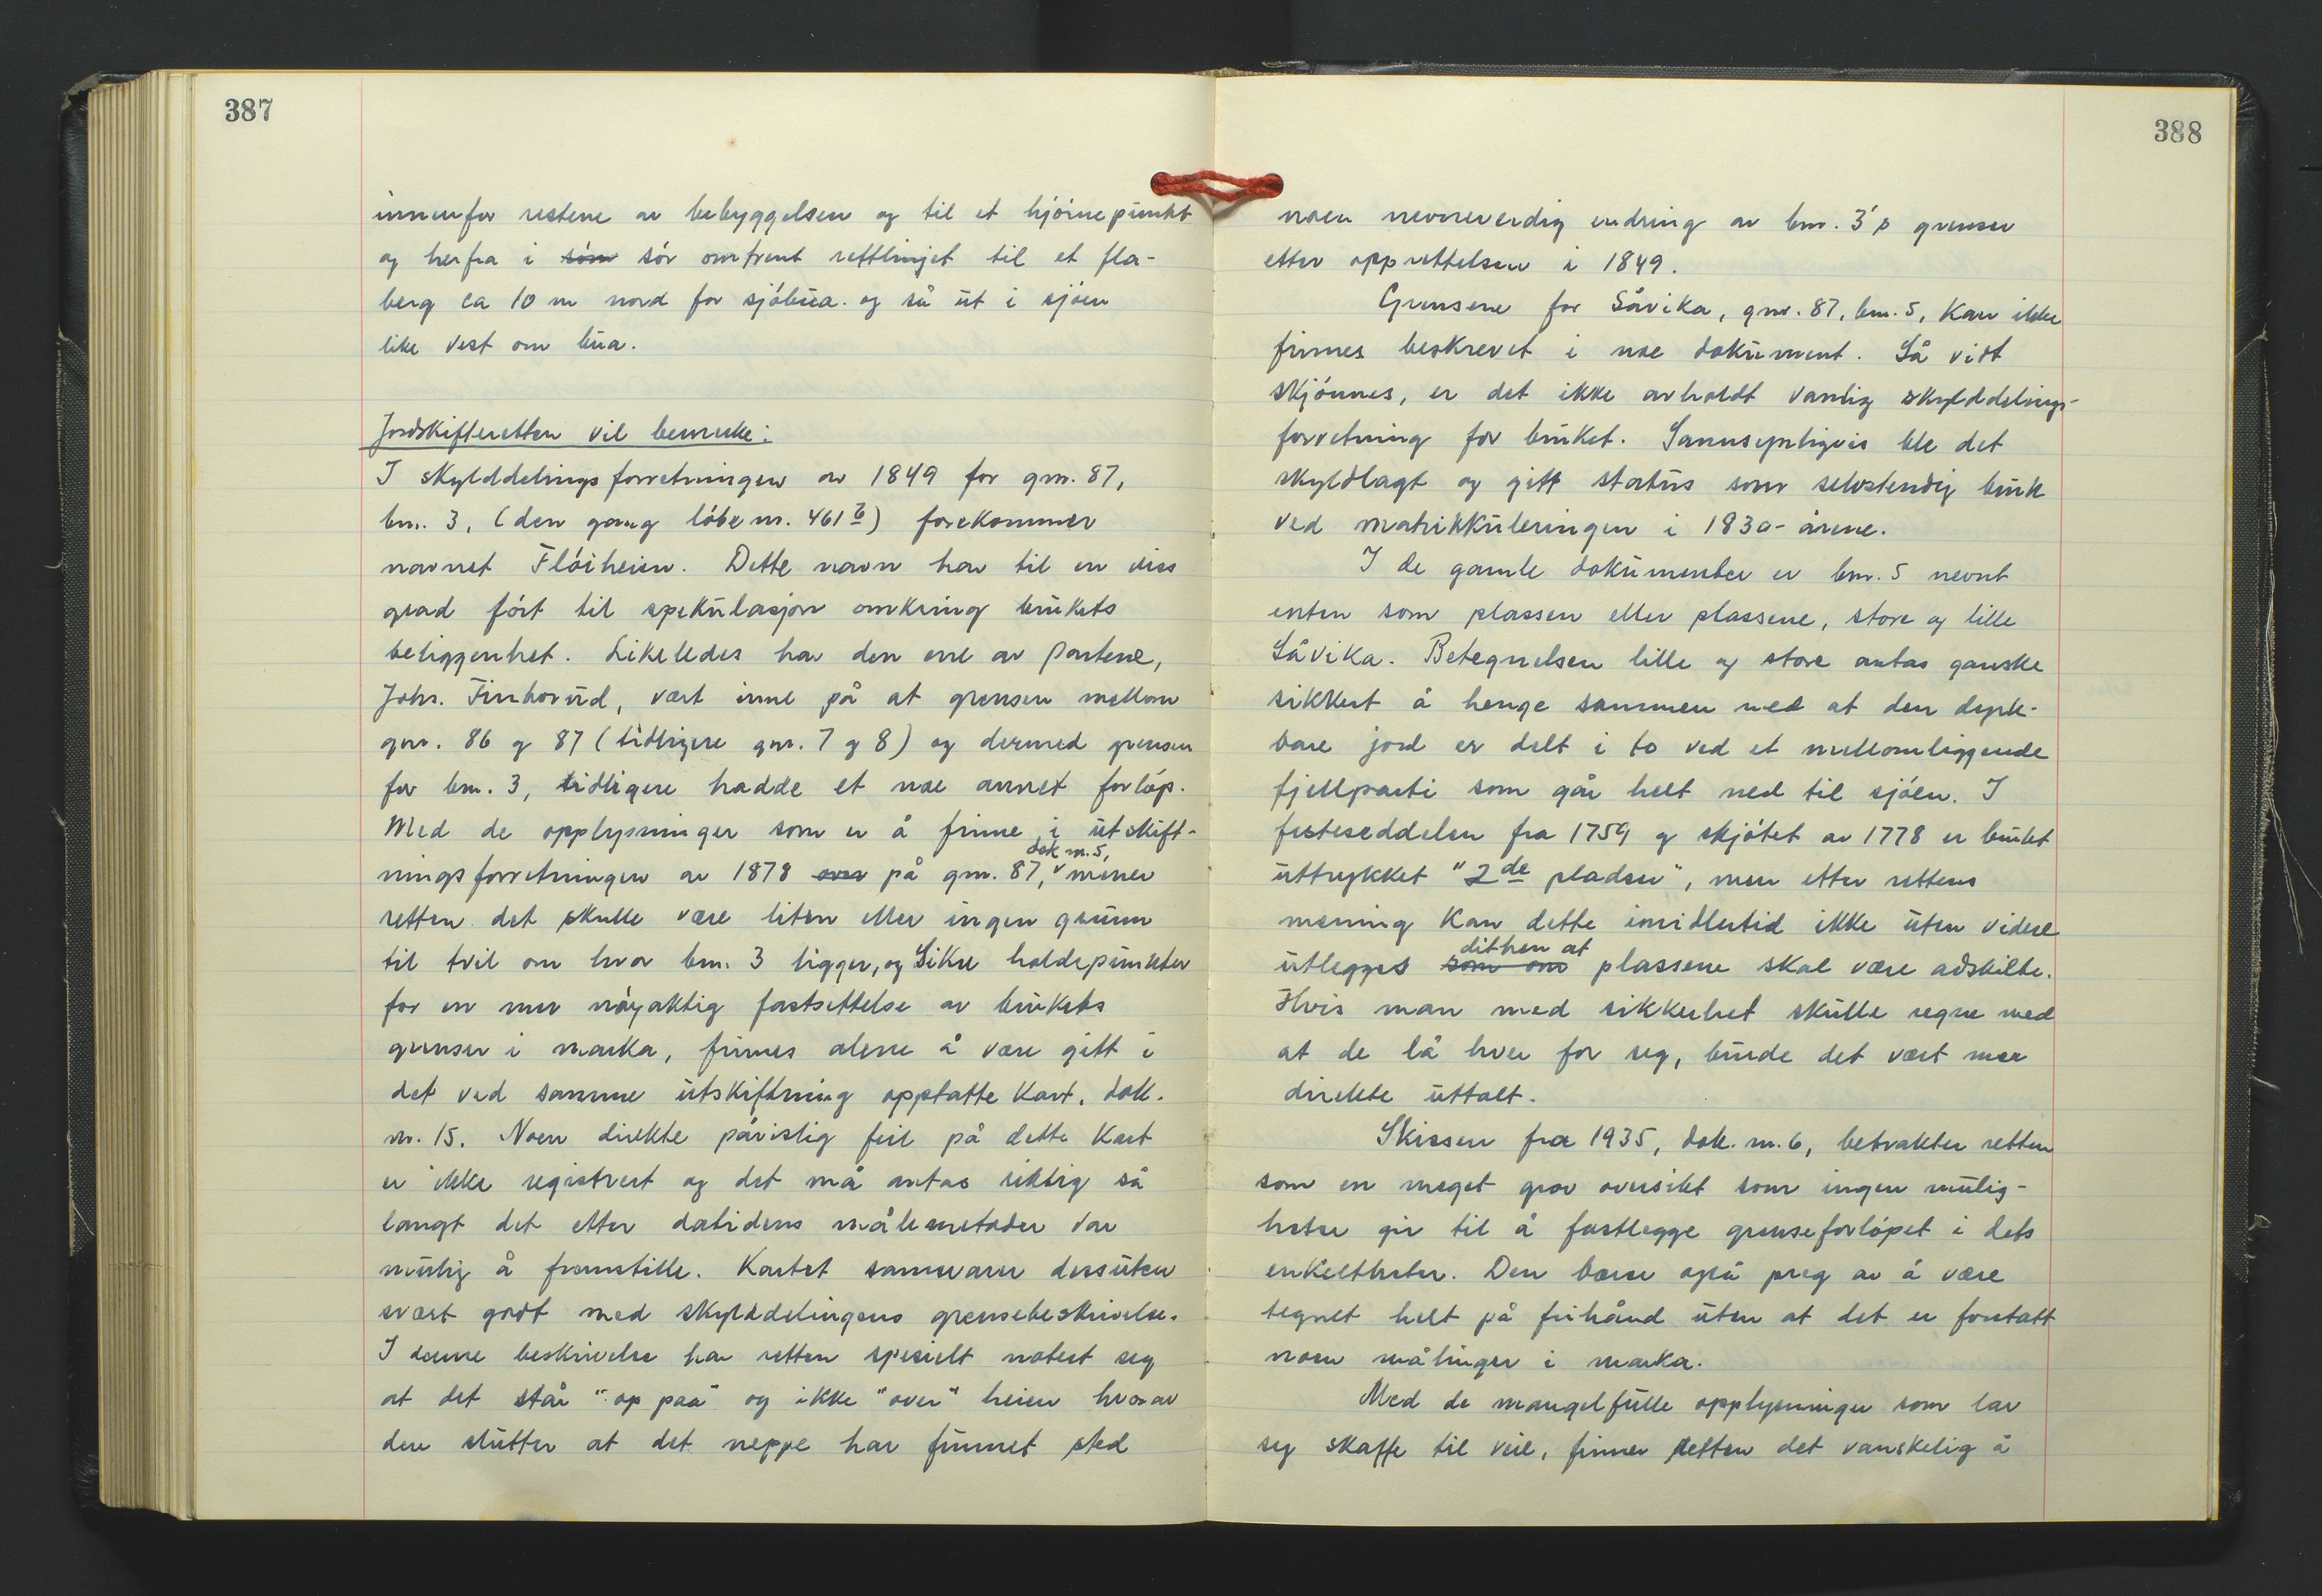 387
innenfor restene av bebyggelsen og til et hjörnepunkt
og herfra i söm sör omtrent rettlinjet til et fla-
berg ca 10 m nord for sjöbua og så ut i sjöen
like vest om bua.
Jordskifteretten vil bemerke:
I skylddelingsforretningen av 1849 for gnr. 87,
bnr. 3, (den gang löbenr. 461 b) forekommer
navnet Flöiheien. Dette navn har til en viss
grad fört til spekulasjon omkring brukets
beliggenhet. Likeledes har den ene av partene,
Johs. Finborud, vært inne på at grensen mellom
gnr. 86 og 87 (tidligere gnr. 7 og 8) og dermed grensen
for bnr. 3, tidligere hadde et noe annet forlöp.
Med de opplysninger som er å finne i utskift-
dok nr. 5,
ningsforretningen av 1878 over på gnr. 87, mener
retten det skulle være liten eller ingen grunn
til tvil om hvor bnr. 3 ligger, og Sikre holdepunkter
for en mer nöyaktig fastsettelse av brukets
grenser i marka, finnes alene å være gitt i
det ved samme utskiftning opptatte kart, dok.
nr. 15. Noen direkte påviselig feil på dette kart
er ikke registrert og det må antas riktig så
langt det etter datidens målemetoder var
mulig å fremstille. Kartet samsvarer dessuten
svært godt med skylddelingens grensebeskrivelse.
I denne beskrivelse har retten spesielt notert seg
at det står "op paa" og ikke "over" heien hvorav
den slutter at det neppe har funnet sted
388
noen nevneverdig endring av bnr. 3's grenser
etter opprettelsen i 1849.
Grensene for Såvika, gnr. 87, bnr. 5, kan ikke
finnes beskrevet i noe dokument. Så vidt
skjönnes, er det ikke avholdt vanlig skylddelings-
forretning for bruket. Sannsynligvis ble det
skyldlagt og gitt status som selvstendig bruk
ved matrikkuleringen i 1830-årene.
I de gamle dokumenter er bnr. 5 nevnt
enten som plassen eller plassene, store og lille
Såvika. Betegnelsen lille og store antas ganske
sikkert å henge sammen med at den dyrk-
bare jord er delt i to ved et mellomliggende
fjellparti som går helt ned til sjöen. I
festeseddelen fra 1759 og skjötet av 1778 er brukt
uttrykket "2de pladser", men etter rettens
mening kan dette imidlertid ikke uten videre
dithen at
utlegges som om plassene skal være adskilte.
Hvis man med sikkerhet skulle regne med
at de lå hver for seg, burde det vært mer
direkte uttalt.
Skissen fra 1935, dok. nr. 6, betrakter retten
som en meget grov oversikt som ingen mulig-
heter gir til å fastlegge grenseforlöpet i dets
enkeltheter. Den bærer også preg av å være
tegnet helt på frihånd uten at det er foretatt
noen målinger i marka.
Med de mangelfulle opplysninger som lar
seg skaffe til veie, finner retten det vanskelig å